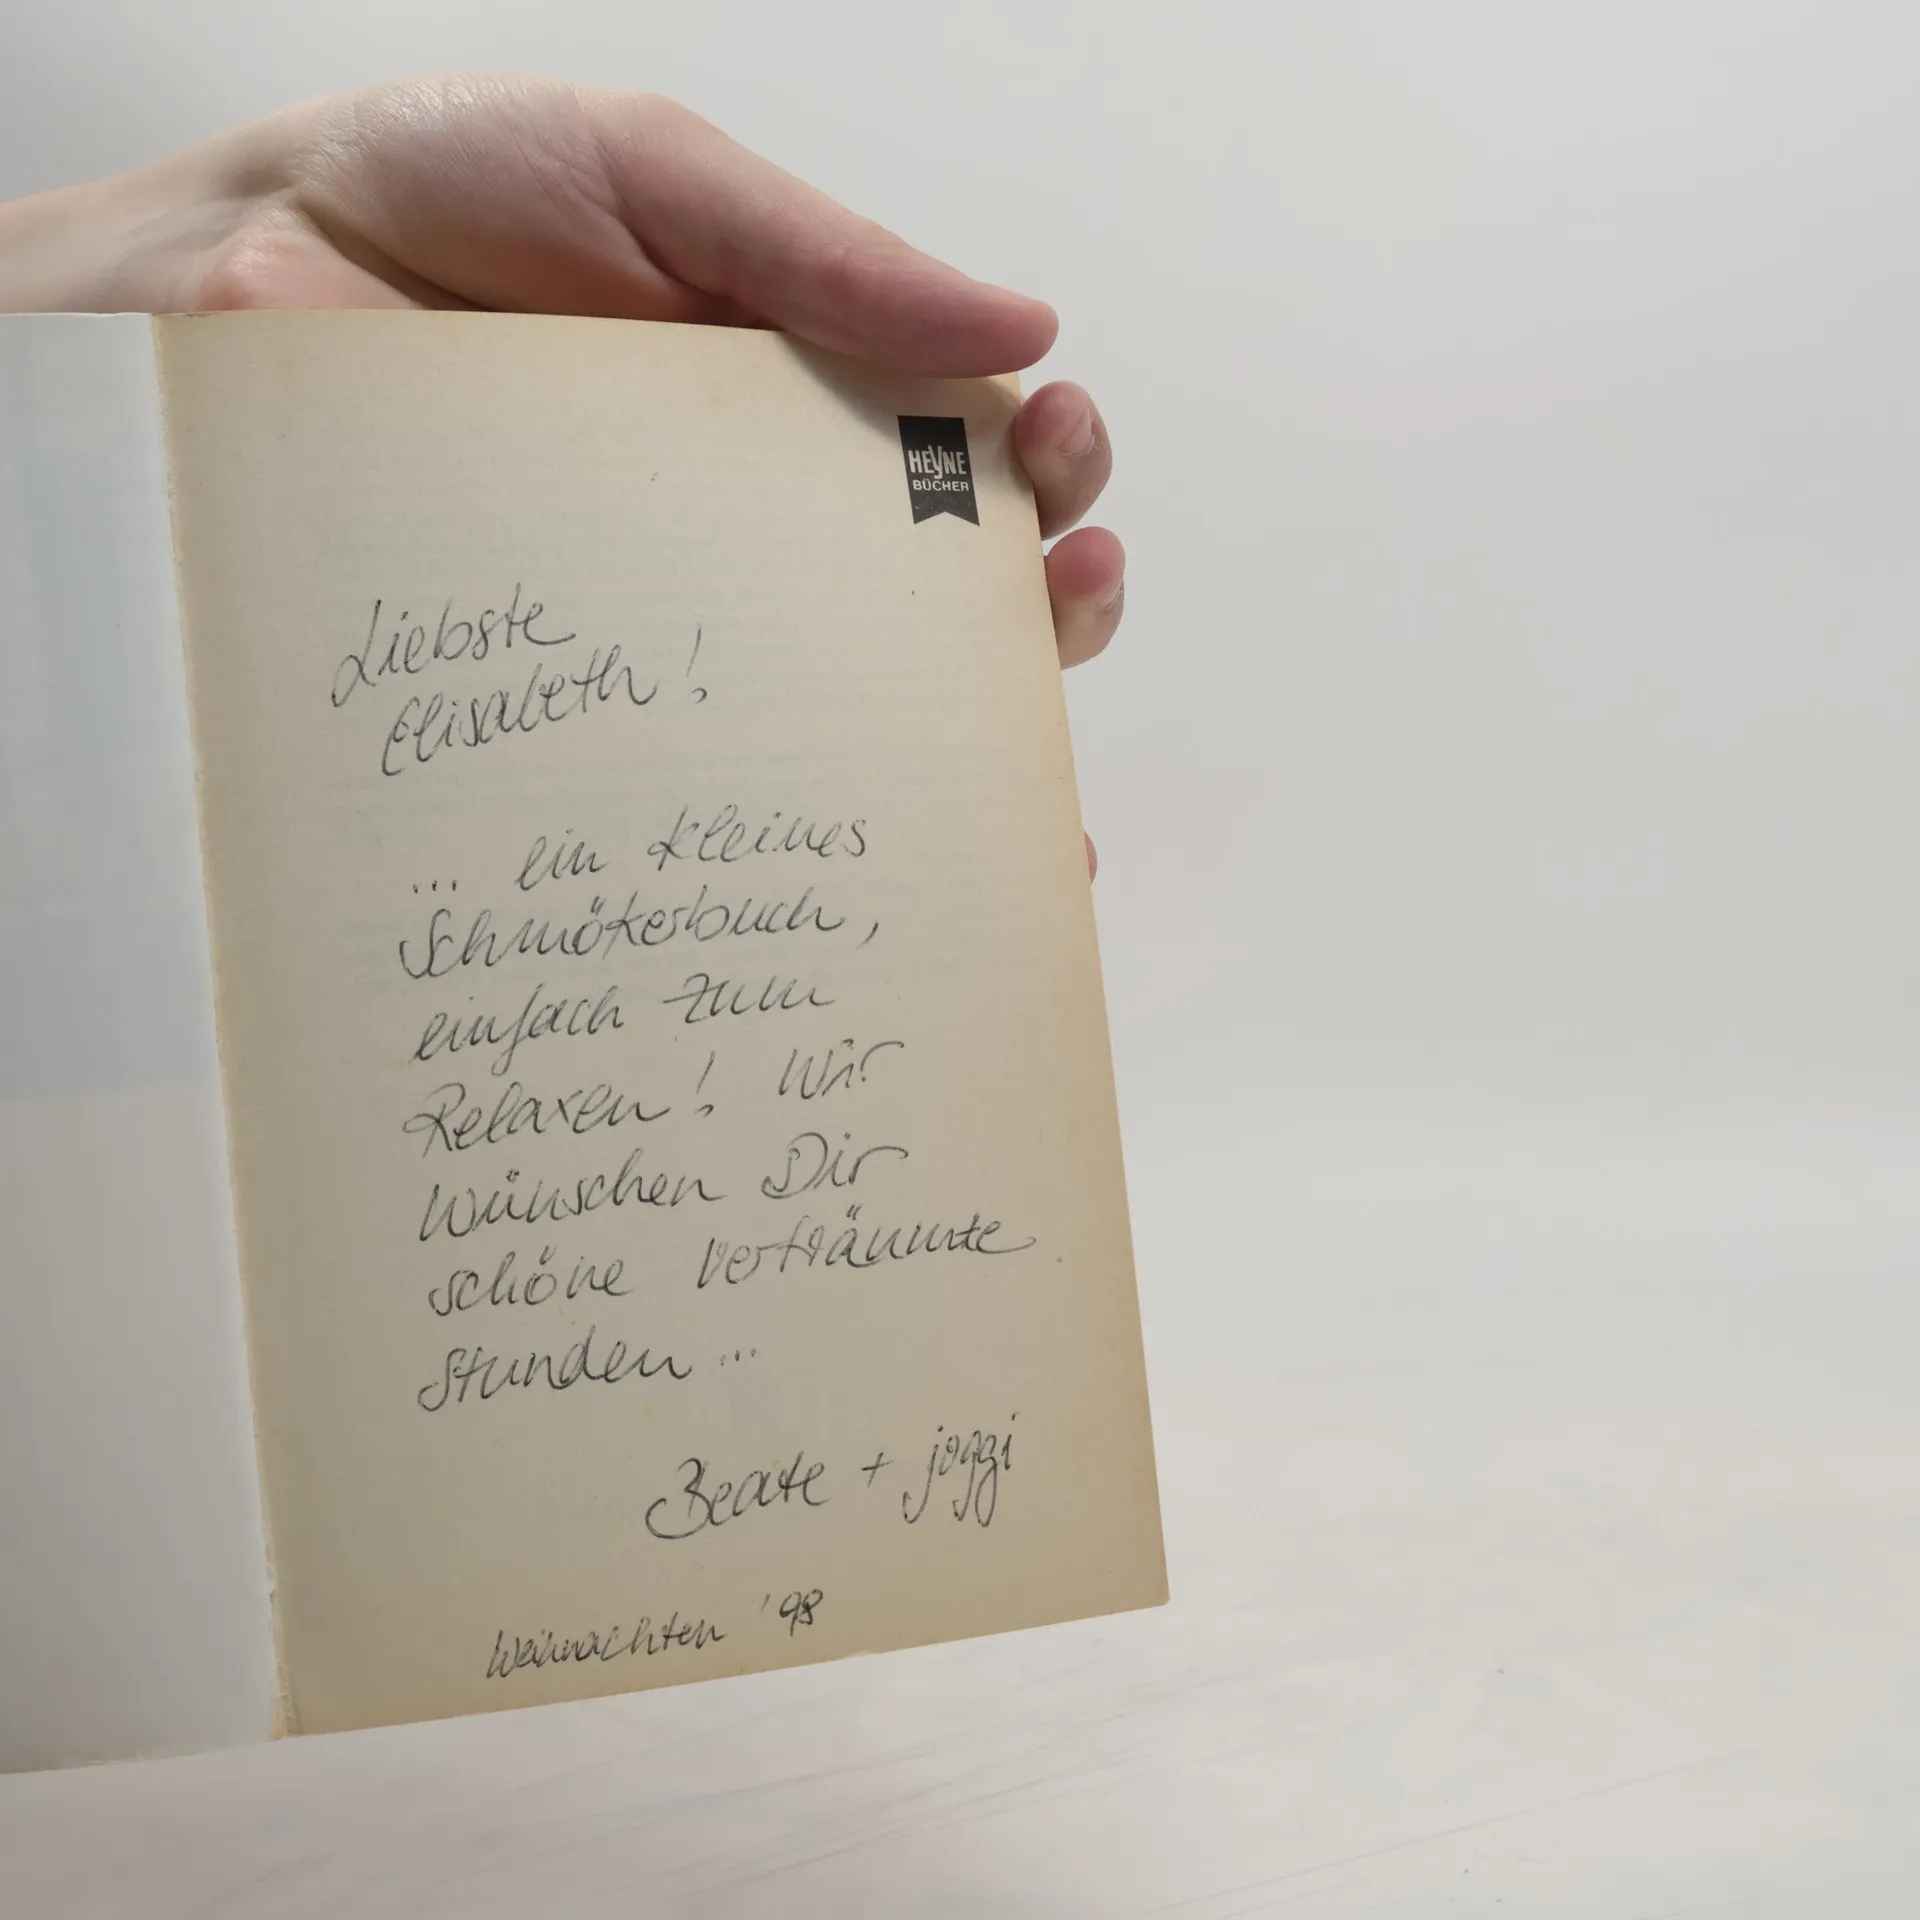 HEYNE
BÜCHER
Liebste
Elisabeth!
... ein kleines
Schmökerbuch,
einfach zum
Relaxen! Wir
wünschen Dir
schöne verträumte
Stunden...
Beate + joggi
Weihnachten '98